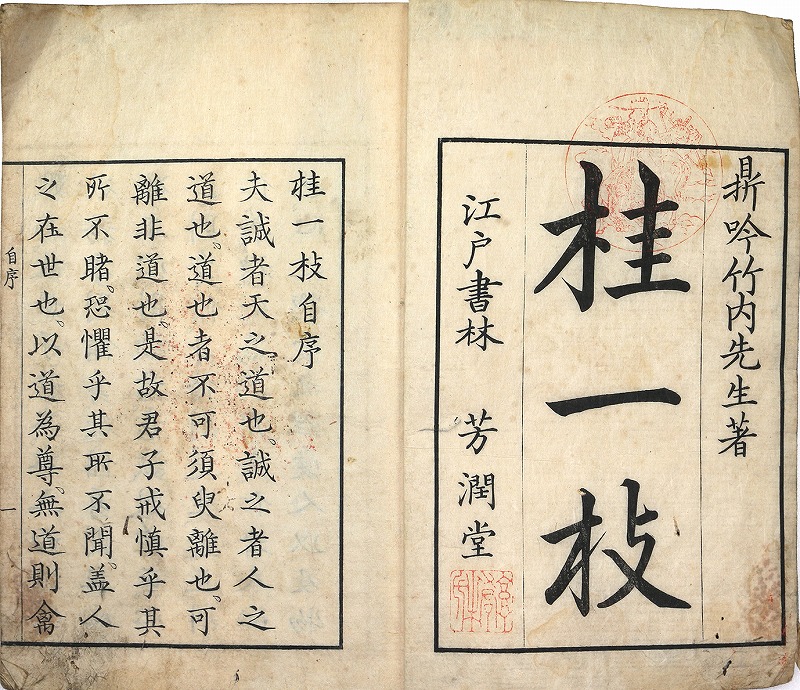 鼎吟竹内先生著
桂一枝
江戸書林　芳潤堂
桂一枝自序
夫誠者天之道也、誠之者人之
道也、道也者不可須臾離也、可
離非道也、是故君子戒慎乎其
所不睹、恐懼乎其所不聞、盖人
之在世也、以道為尊、無道則禽
自序
一